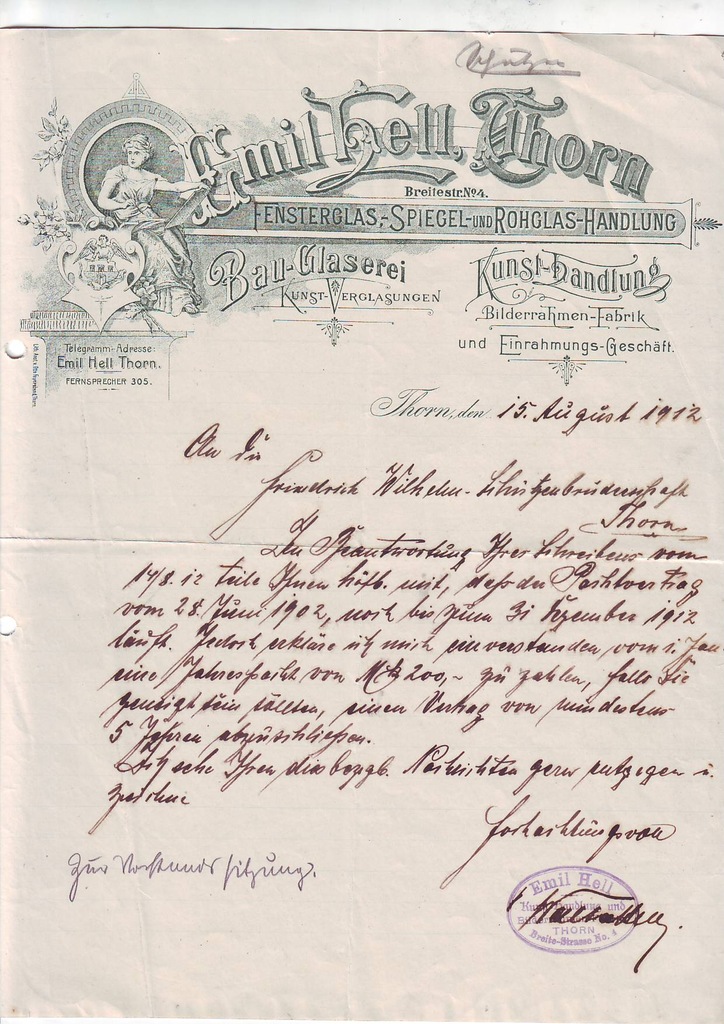 Emil Hell, Thorn
Breitestr. No 4.
FENSTERGLAS-, SPIEGEL- UND ROHGLAS-HANDLUNG
Bau-Glaserei
KUNST-VERGLASUNGEN
Kunst-Handlung
Bilderrahmen-Fabrik
und Einrahmungs-Geschäft.
Telegramm-Adresse:
Emil Hell Thorn.
FERNSPRECHER 305.
Thorn, den 15. August 1912
An die
Friedrich Wilhelm-Schützenbrüderschaft
Thorn
In Beantwortung Ihres Schreibens vom
14/8.12 teile Ihnen höfl. mit, dass der Pachtvertrag
vom 28. Juni 1902, noch bis zum 31 Dezember 1912
läuft. Jedoch erkläre ich mich einverstanden vom 1. Jan
eine Jahrespacht von Mk 200,- zu zahlen, falls Sie
geneigt sein sollten, einen Vertrag von mindestens
5 Jahren abzuschließen.
Ich sehe Ihren diesbezgl. Nachrichten gern entgegen u.
zeichne
Hochachtungsvoll
Zur Vorstandssitzung.
Emil Hell
Kunst-Handlung und
THORN
Breite-Strasse No. 4